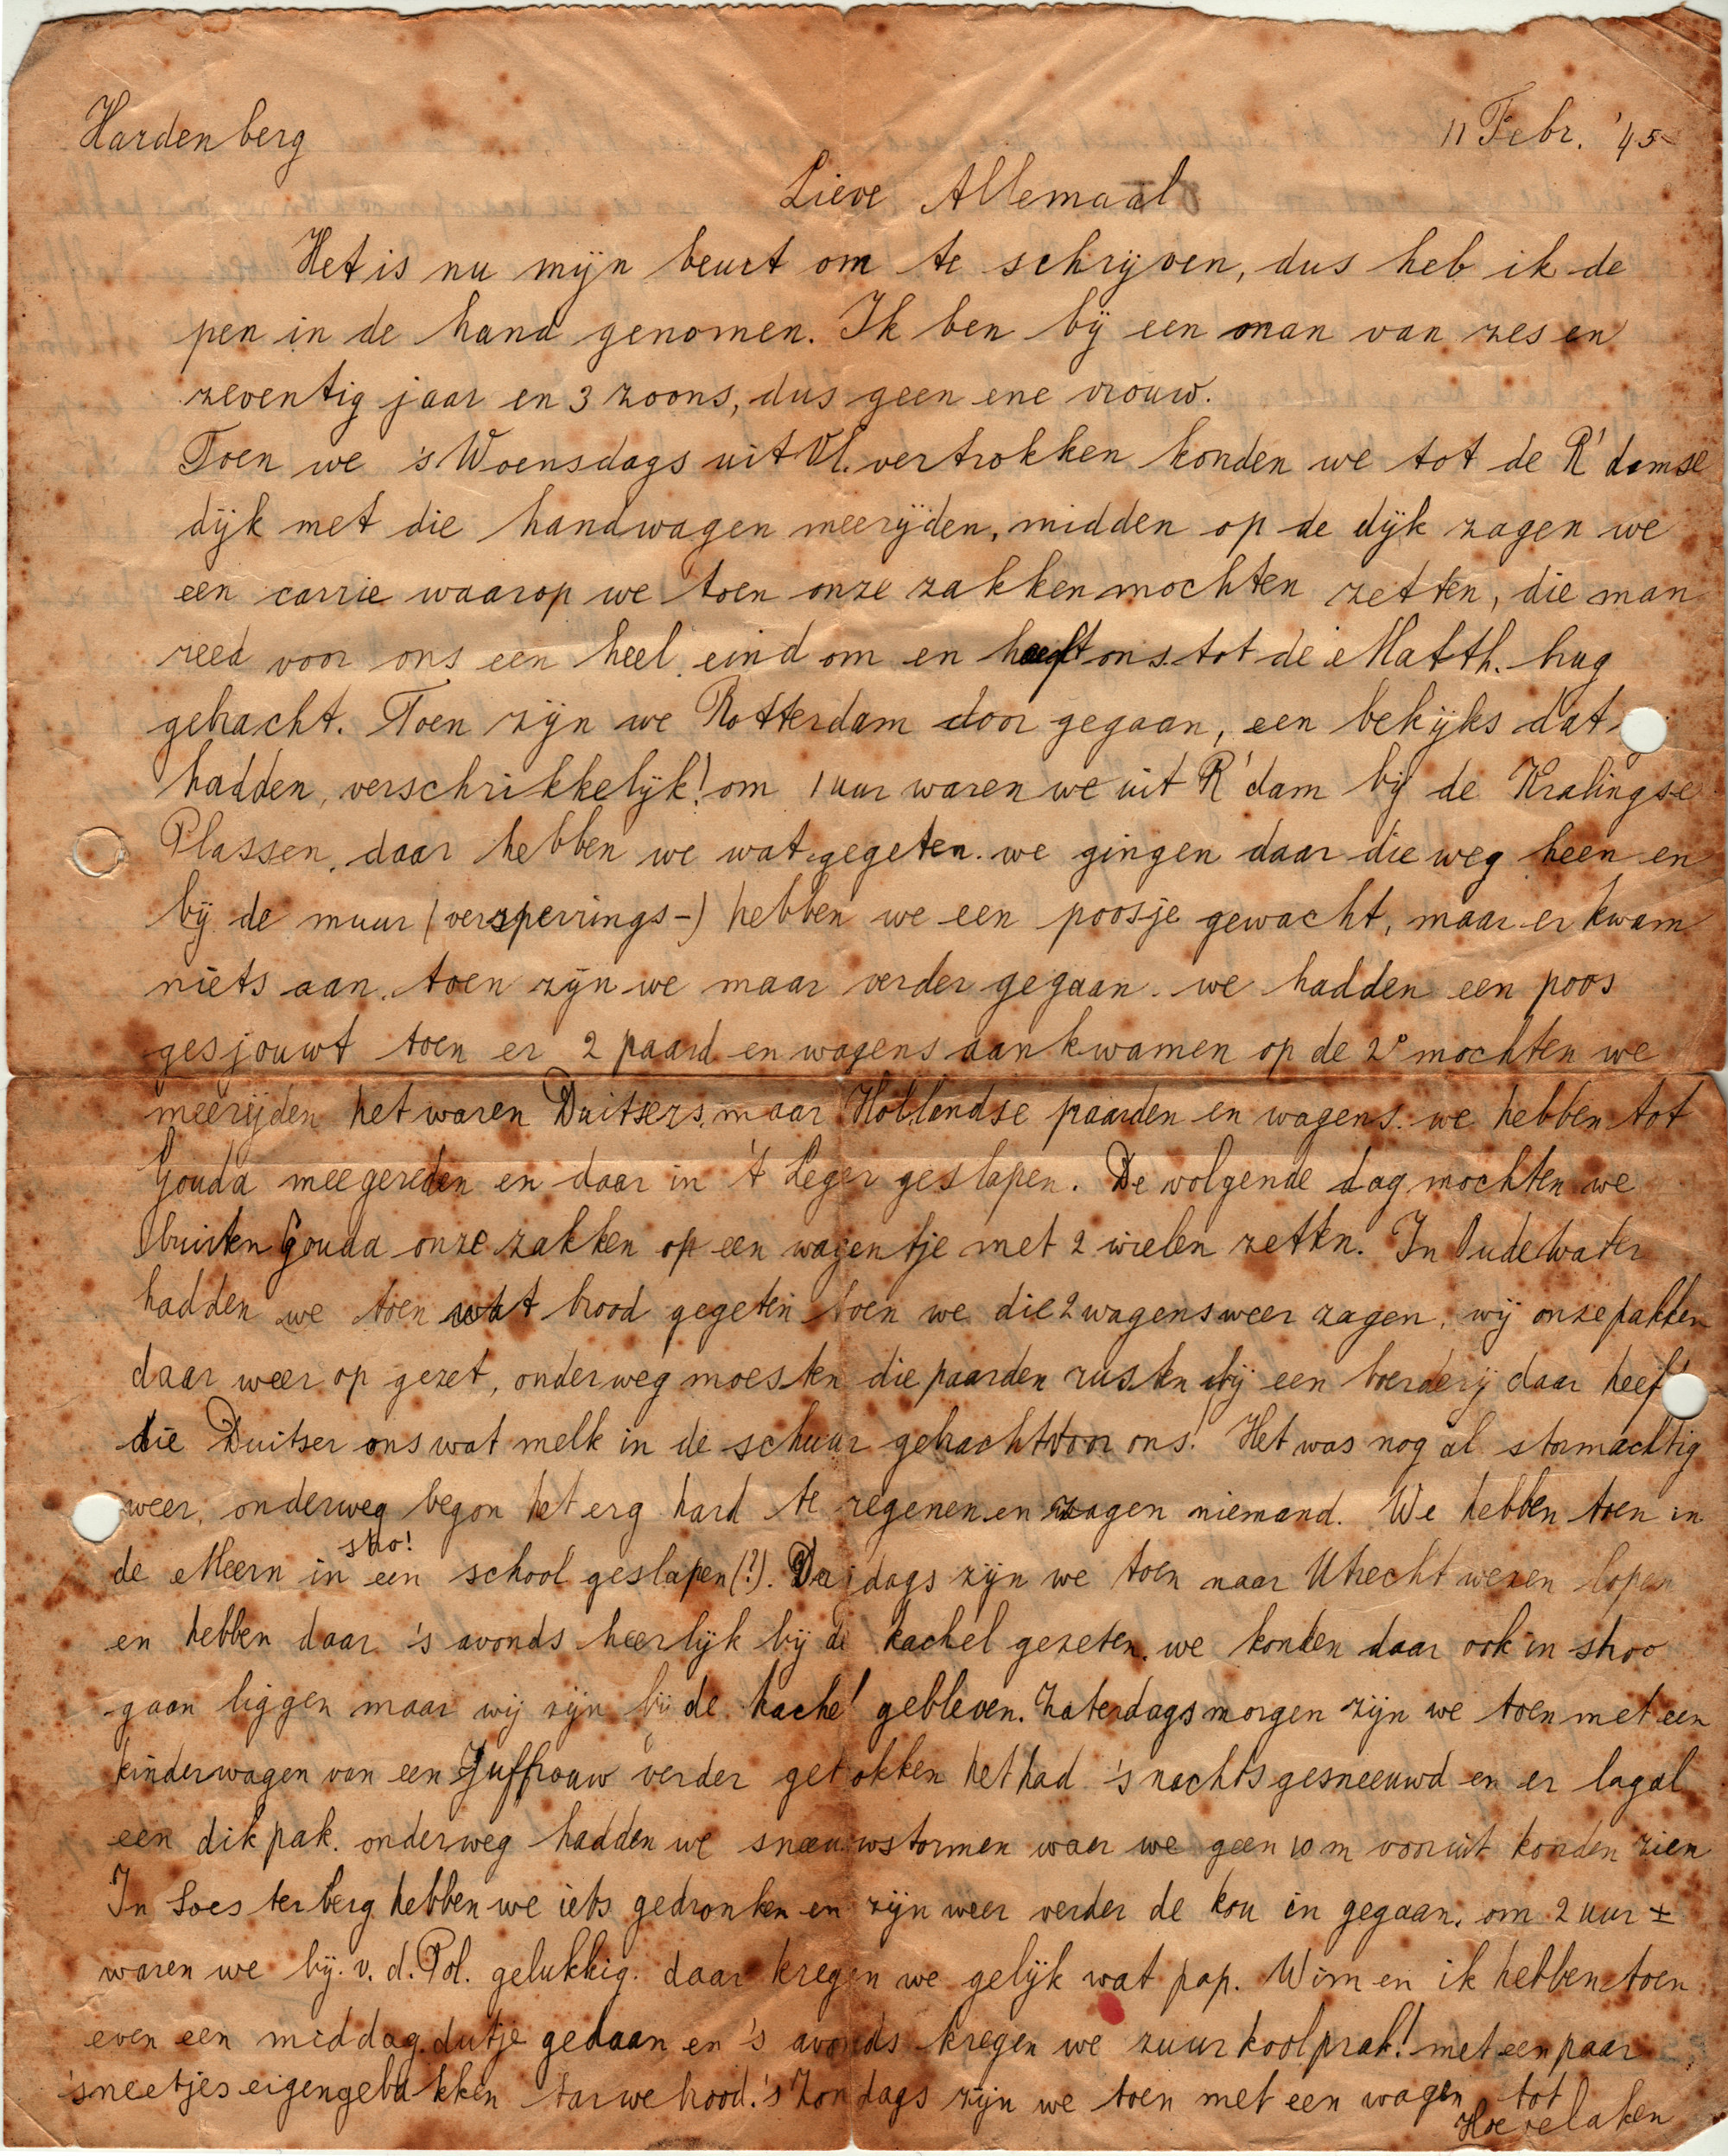 Hardenberg 11 Febr. '45
Lieve Allemaal
Het is nu mijn beurt om te schrijven, dus heb ik de
pen in de hand genomen. Ik ben bij een man van zes en
zeventig jaar en 3 zoons, dus geen ene vrouw.
Toen we 's Woensdags uit Vl. vertrokken konden we tot de R'damse
dijk met die handwagen meerijden, midden op de dijk zagen we
een carrie waarop we toen onze zakken mochten zetten, die man
reed voor ons een heel eind om en heeft ons tot de Matth. brug
gebracht. Toen zijn we Rotterdam door gegaan, een bekijks dat
hadden, verschrikkelijk! om 1 uur waren we uit R'dam bij de Kralingse
Plassen, daar hebben we wat gegeten. we gingen daar die weg heen en
bij de muur (versperrings-) hebben we een poosje gewacht, maar er kwam
niets aan. toen zijn we maar verder gegaan. we hadden een poos
gesjouwt toen er 2 paard en wagens aan kwamen op de 2e mochten we
meerijden het waren Duitsers, maar Hollandse paarden en wagens. we hebben tot
Gouda meegereden en daar in 't Leger geslapen. De volgende dag mochten we
buiten Gouda onze zakken op een wagentje met 2 wielen zetten. In Oudewater
hadden we toen wat brood gegeten toen we die 2 wagens weer zagen, wij onze pakken
daar weer op gezet, onderweg moesten die paarden rusten bij een boerderij daar heeft
die Duitser ons wat melk in de schuur gebracht voor ons! Het was nog al stormachtig
weer, onderweg begon het erg hard te regenen en zagen niemand. We hebben toen in
stro!
de Meern in een school geslapen (?). Vrijdags zijn we toen naar Utrecht wezen lopen
en hebben daar 's avonds heerlijk bij de kachel gezeten. we konden daar ook in stroo
gaan liggen maar wij zijn bij de kachel gebleven. Zaterdagsmorgen zijn we toen met een
kinderwagen van een Juffrouw verder getrokken het had 's nachts gesneeuwd en er lag al
een dik pak. onderweg hadden we sneeuwstormen waar we geen 10 m vooruit konden zien
In Soesterberg hebben we iets gedronken en zijn weer verder de kou in gegaan. om 2 uur ±
waren we bij v. d. Pol. gelukkig. daar kregen we gelijk wat pap. Wim en ik hebben toen
even een middag dutje gedaan en 's avonds kregen we zuurkoolprak! met een paar
sneetjes eigengebakken tarwebrood. 's Zondags zijn we toen met een wagen tot
Hoevelaken